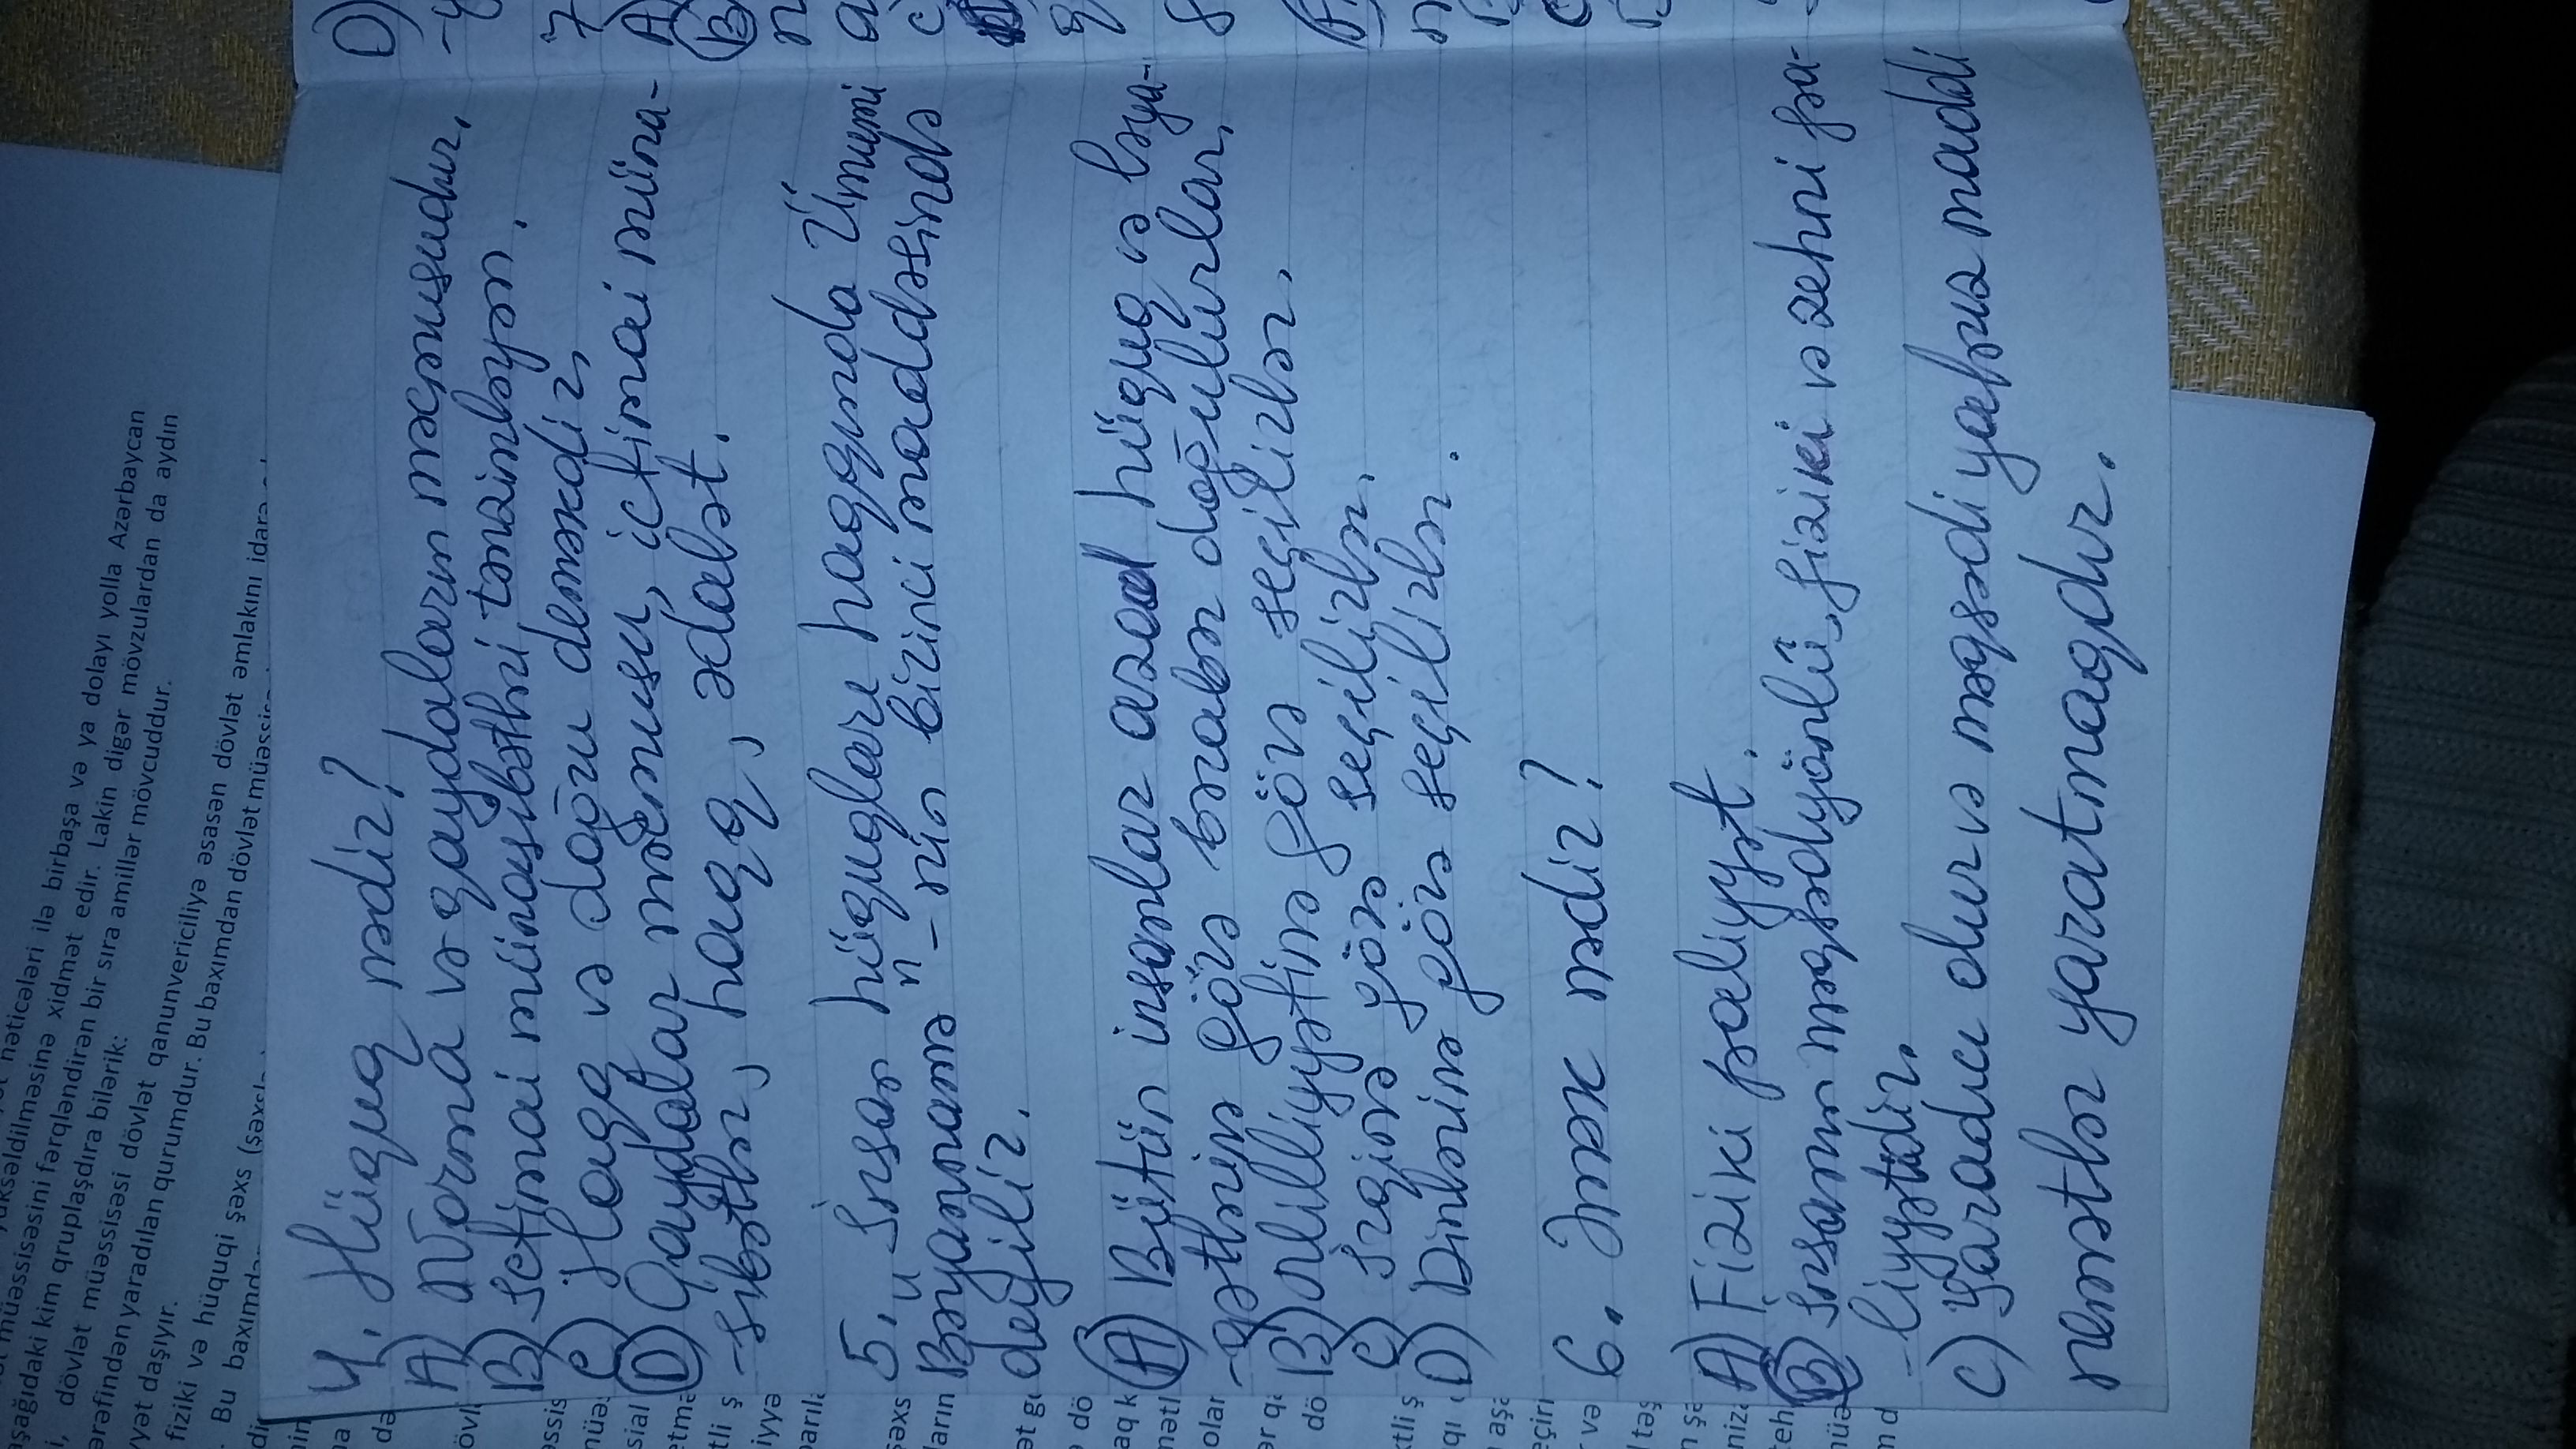 nəticələri ilə birbaşa və ya dolayı yolla Azərbaycan
yüksəldilməsinə xidmət edir. Lakin digər mövzulardan da aydın
müəssisəsini fərqləndirən bir sıra amillər mövcuddur.
aşağıdaki kim qruplaşdıra bilərik:
dövlət müəssisəsi dövlət qanunvericiliyə əsasən dövlət əmlakını idarə
tərəfindən yaradılan qurumdur. Bu baxımdan dövlət
daşıyır.
fiziki və hüquqi şəxs
Bu
4. Hüquq nədir?
A) Norma və qaydaların məcmusudur.
B) İctimai münasibətləri tənzimləyən.
C) Haqq və doğru deməkdir.
D) Qaydalar məcmusu, ictimai müna-
-sibətlər, haqq, ədalət.
5. "İnsan hüquqları haqqında Ümumi
Bəyannamə"-nin birinci maddəsində
deyilir.
A) Bütün insanlar azad hüquq və ləya-
-qətlərinə görə bərabər doğulurlar.
B) Milliyyətinə görə seçilirlər.
C) İrqinə görə seçilirlər.
D) Dinlərinə görə seçilirlər.
6. Əmək nədir?
A) Fiziki fəaliyyət.
B) İnsanın məqsədyönlü, fiziki və zehni fəa-
-liyyətidir.
C) Yaradıcı olur və məqsədi yalnız maddi
nemətlər yaratmaqdır.
D)
7
A)
B
8